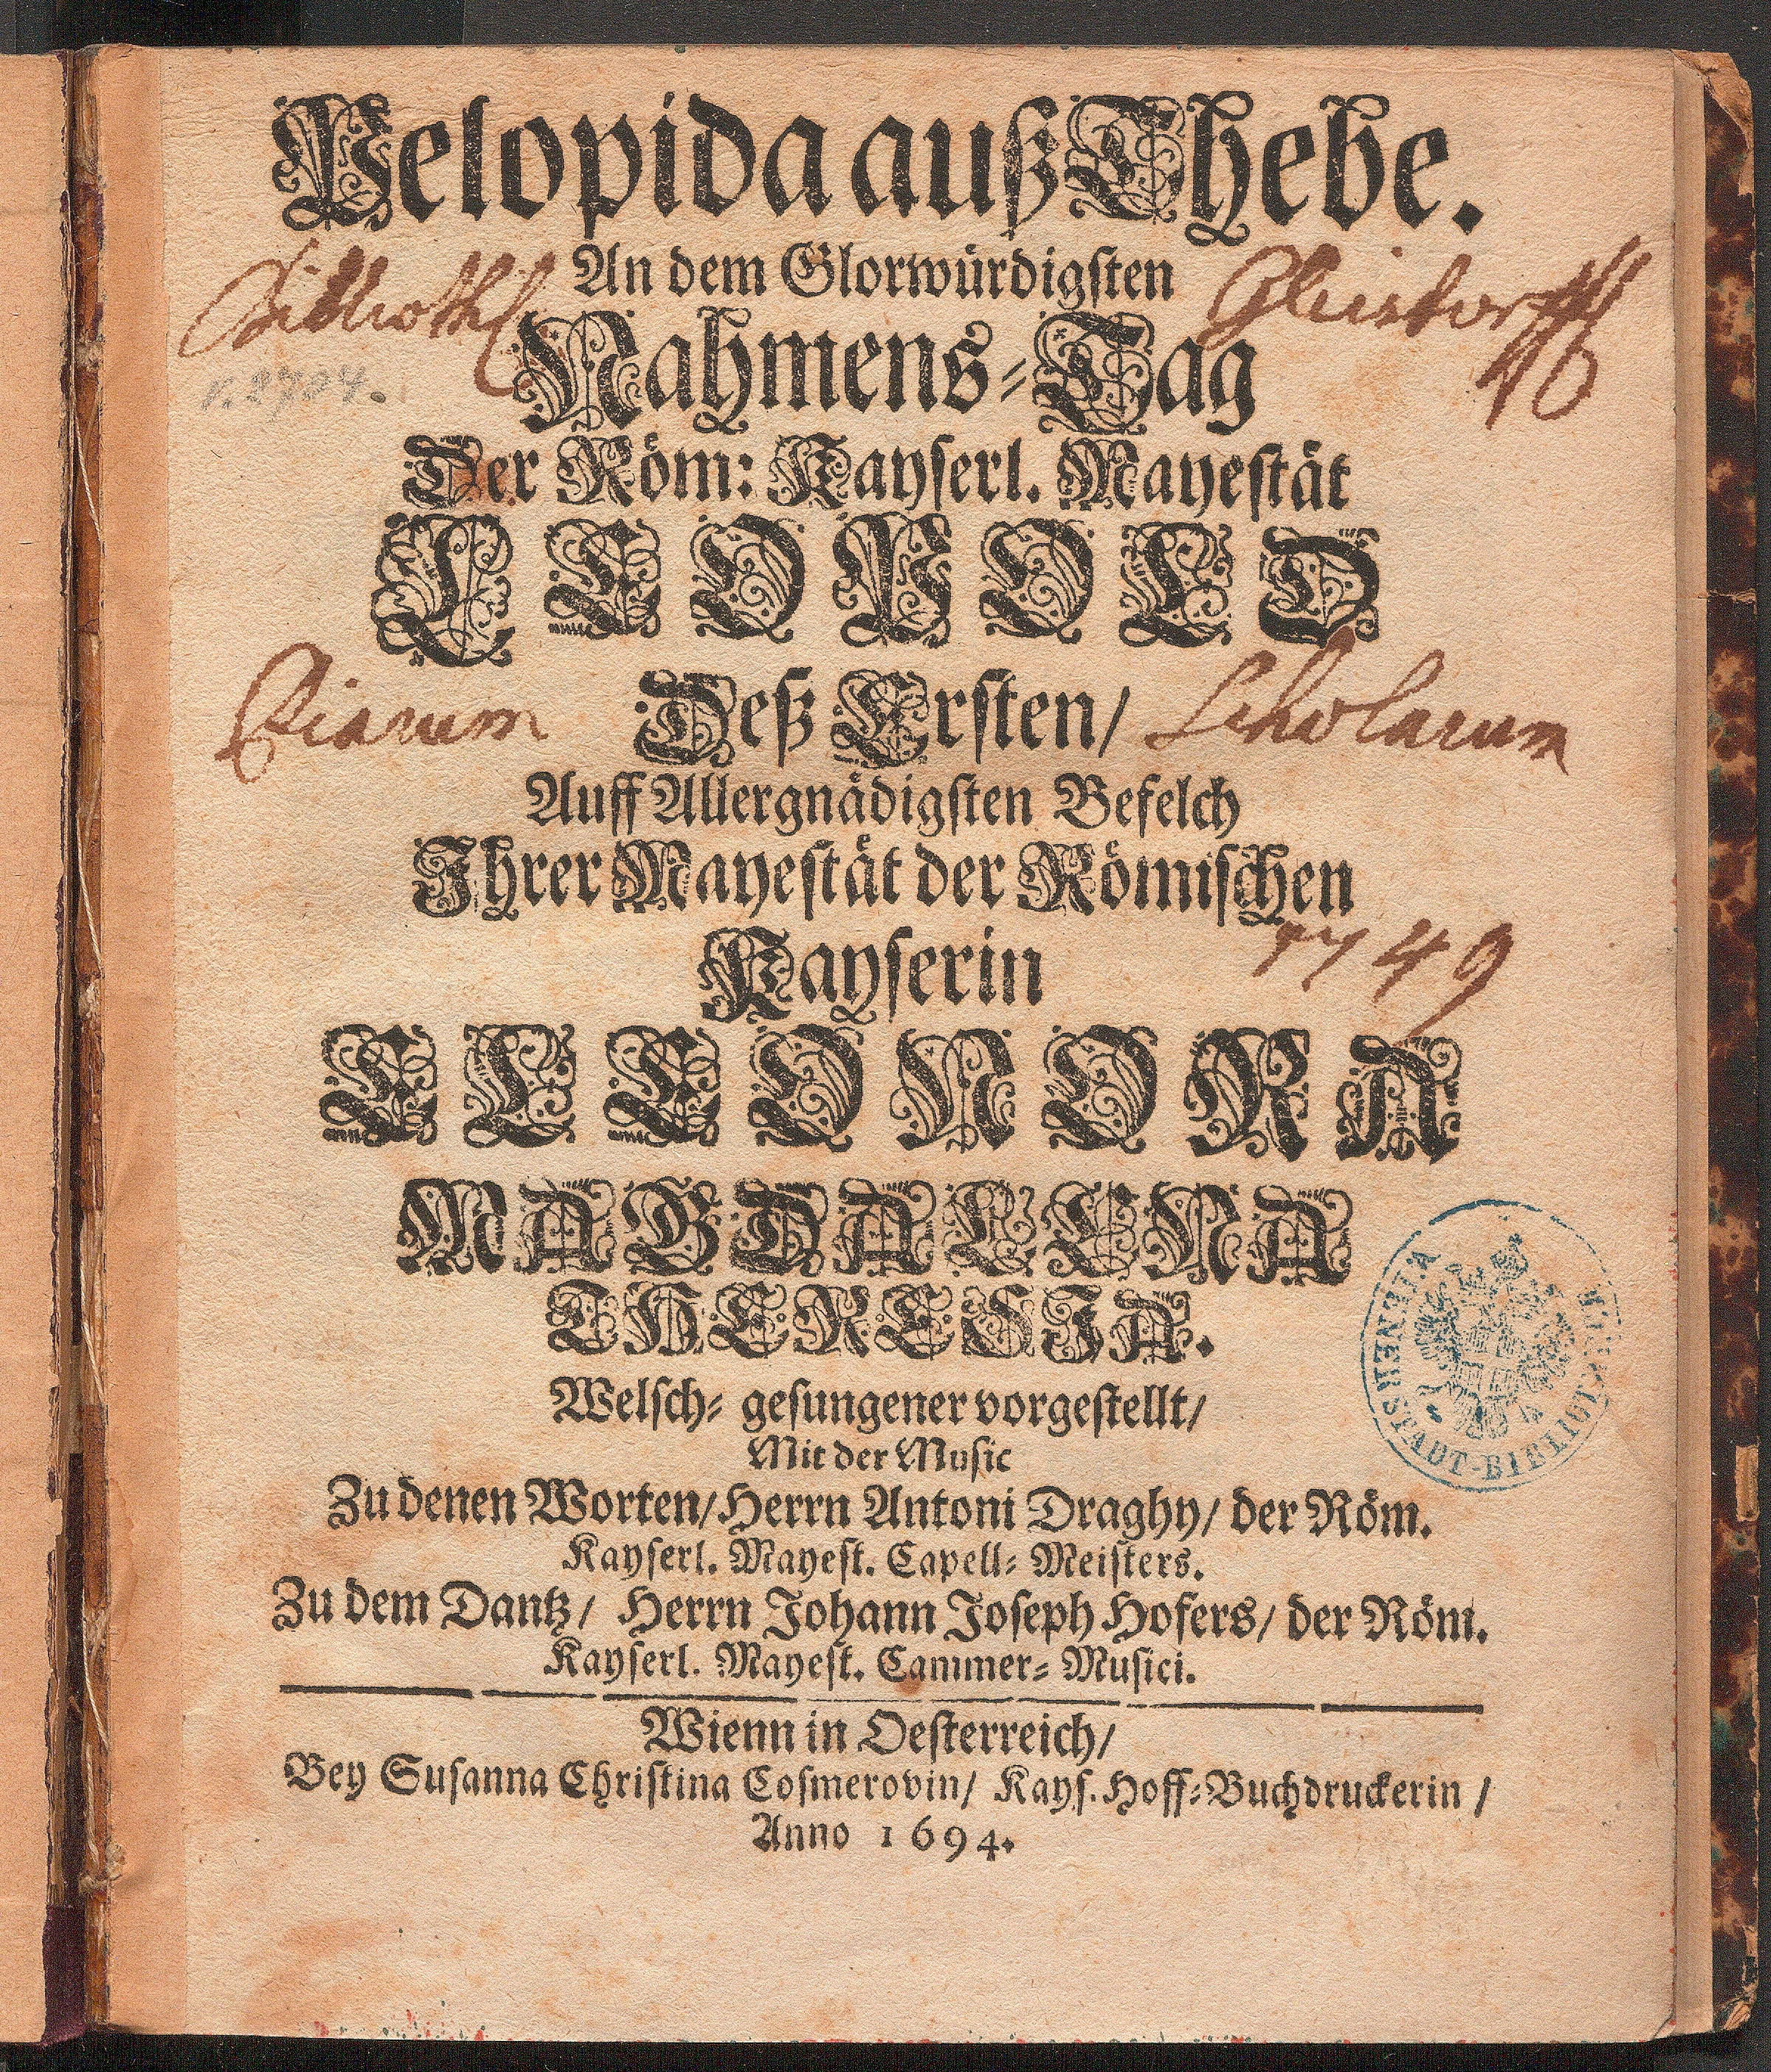 Pelopida auß Thebe.
An dem Glorwürdigsten
Biblioth
Nahmens-Tag
Der Röm: Kayserl. Mayestät
LEOPOLD
Piarum
Deß Ersten/
Scholarum
Auff Allergnädigsten Befelch
Ihrer Mayestät der Römischen
Kayserin
1749
ELEONORA
MAGDALENA
THERESIA.
VIENER STADT-BIBLIOTHEK
Welsch- gesungener vorgestellt/
Mit der Music
Zu denen Worten/Herrn Antoni Draghy/ der Röm.
Kayserl. Mayest. Capell-Meisters.
Zu dem Dantz/ Herrn Johann Joseph Hofers/ der Röm.
Kayserl. Mayest. Cammer-Musici.
Wienn in Oesterreich/
Bey Susanna Christina Cosmerovin/ Kays. Hoff-Buchdruckerin/
Anno 1694.